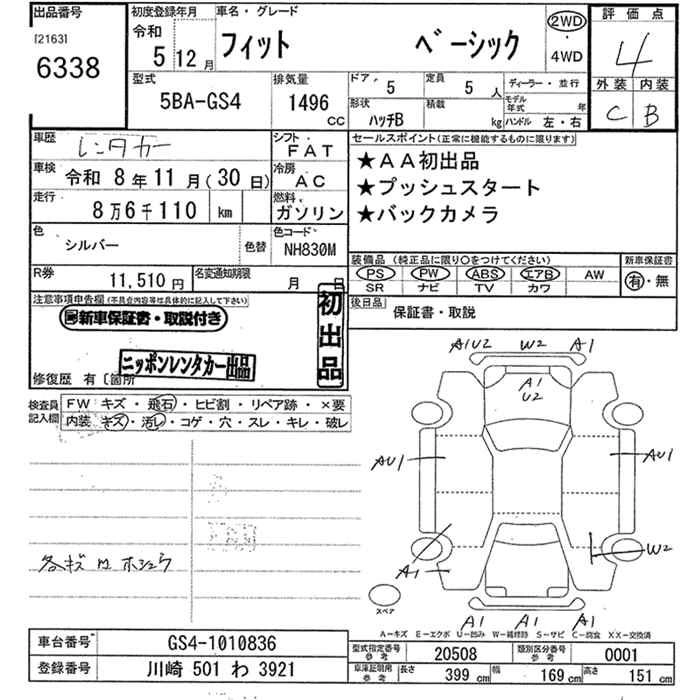 出品番号 初度登録年月 車名・グレード 2WD 評価点
[2163] 6338 令和 5 12月 フィット ベーシック 4WD 4
外装 内装
C B
型式 5BA-GS4 排気量 1496 CC ドア 5 定員 5 人 ディーラー・並行
形状 ハッチB 積載 kg モデル年式 年
ハンドル 左・右
車歴 レンタカー シフト FAT
車検 令和 8年11月(30日) 冷房 AC
走行 8万6千110 km 燃料 ガソリン
色 シルバー 色替 色コード NH830M
R券 11,510円 名変通知期限 月 日
セールスポイント(正常に機能するものに限ります)
★AA初出品
★プッシュスタート
★バックカメラ
装備品 (純正品に限り○をつけてください) 新車保証書
PS PW ABS エアB AW 有・無
SR ナビ TV カワ
後日品 保証書・取説
注意事項申告欄(不具合内容等は具体的に記入して下さい)
新車保証書・取説付き
初出品
ニッポンレンタカー出品
修復歴 有 [箇所
検査員記入欄 FW キズ・飛石・ヒビ割・リペア跡・×要
内装 キズ・汚レ・コゲ・穴・スレ・キレ・破レ
A1U2 W2 A1
A1
U2
AU1 AU1
W2
A1
A1 A1 A1
スペア
A-キズ E-エクボ U-凹み W-補修跡 S-サビ C-腐食 XX-交換済
車台番号 GS4-1010836
登録番号 川崎 501 わ 3921
型式指定番号 参考 20508 類別区分番号 参考 0001
車庫証明用 参考 長さ 399 cm 幅 169 cm 高さ 151 cm